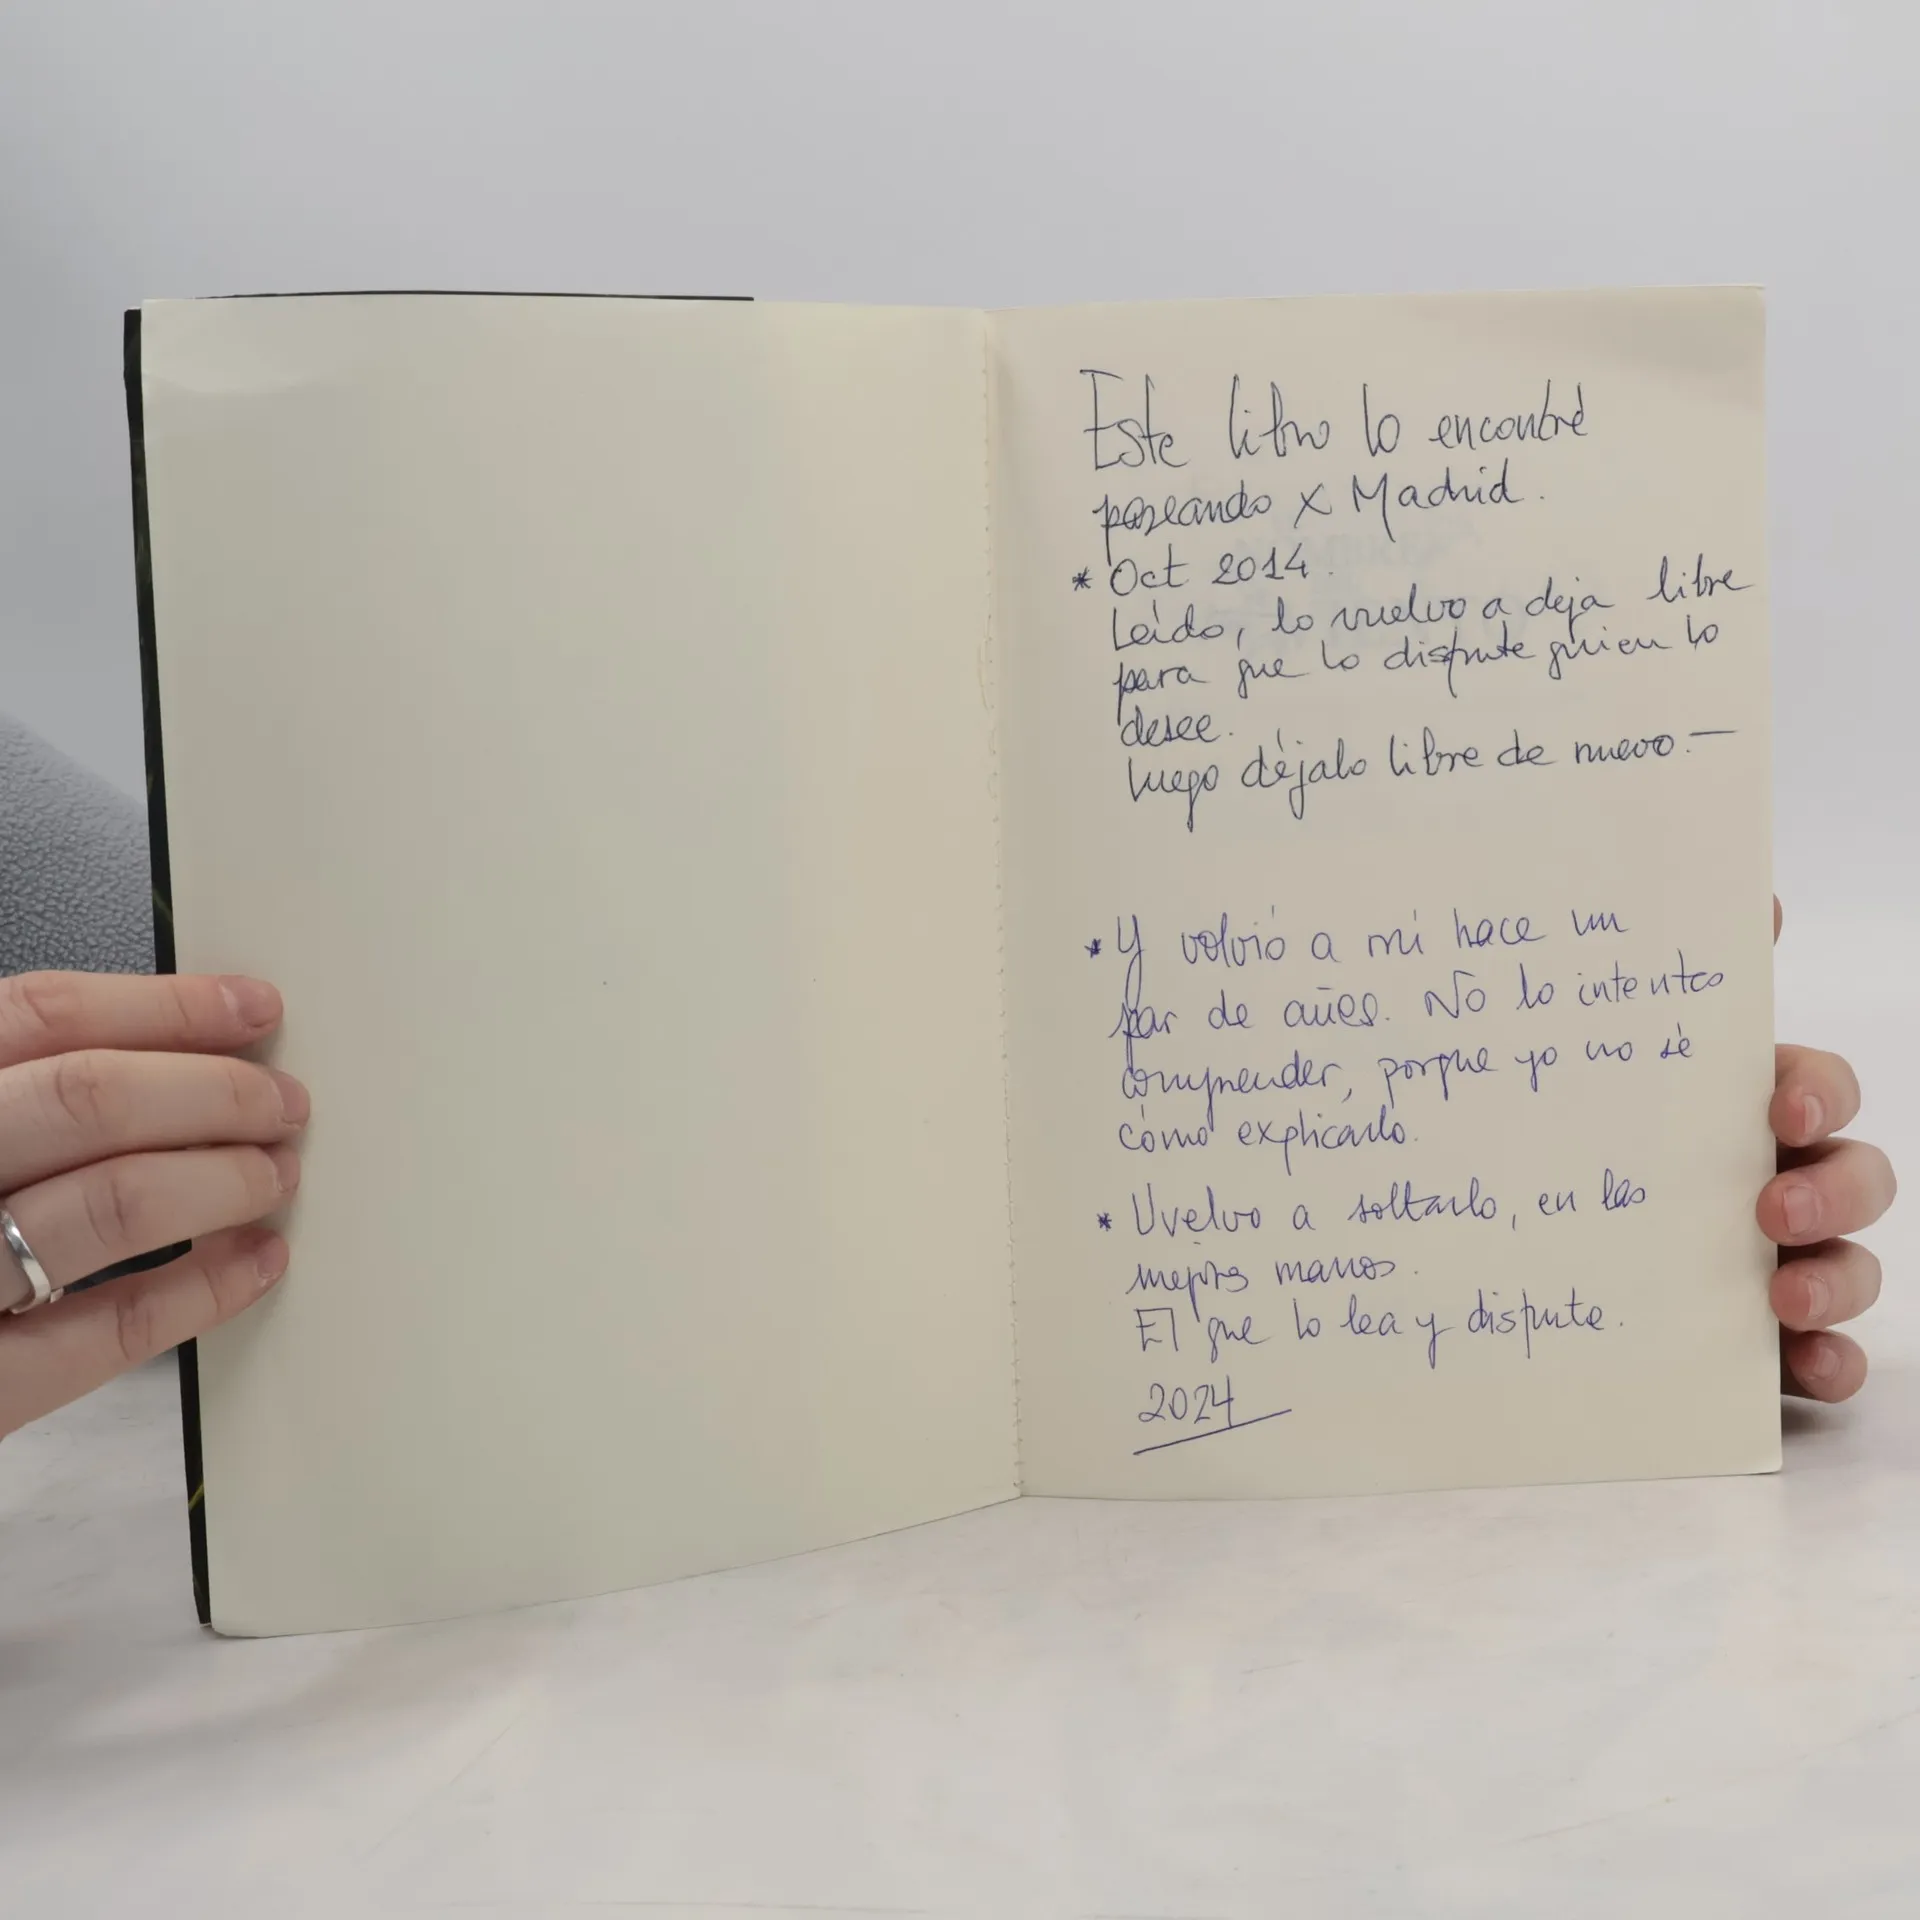 Este libro lo encontré
paseando x Madrid.
* Oct 2014.
Leído, lo vuelvo a deja libre
para que lo disfrute quien lo
desee.
luego déjalo libre de nuevo.—
* Y volvió a mí hace un
par de años. No lo intentes
comprender, porque yo no sé
cómo explicarlo.
* Vuelvo a soltarlo, en las
mejores manos.
El que lo lea y disfrute.
2024